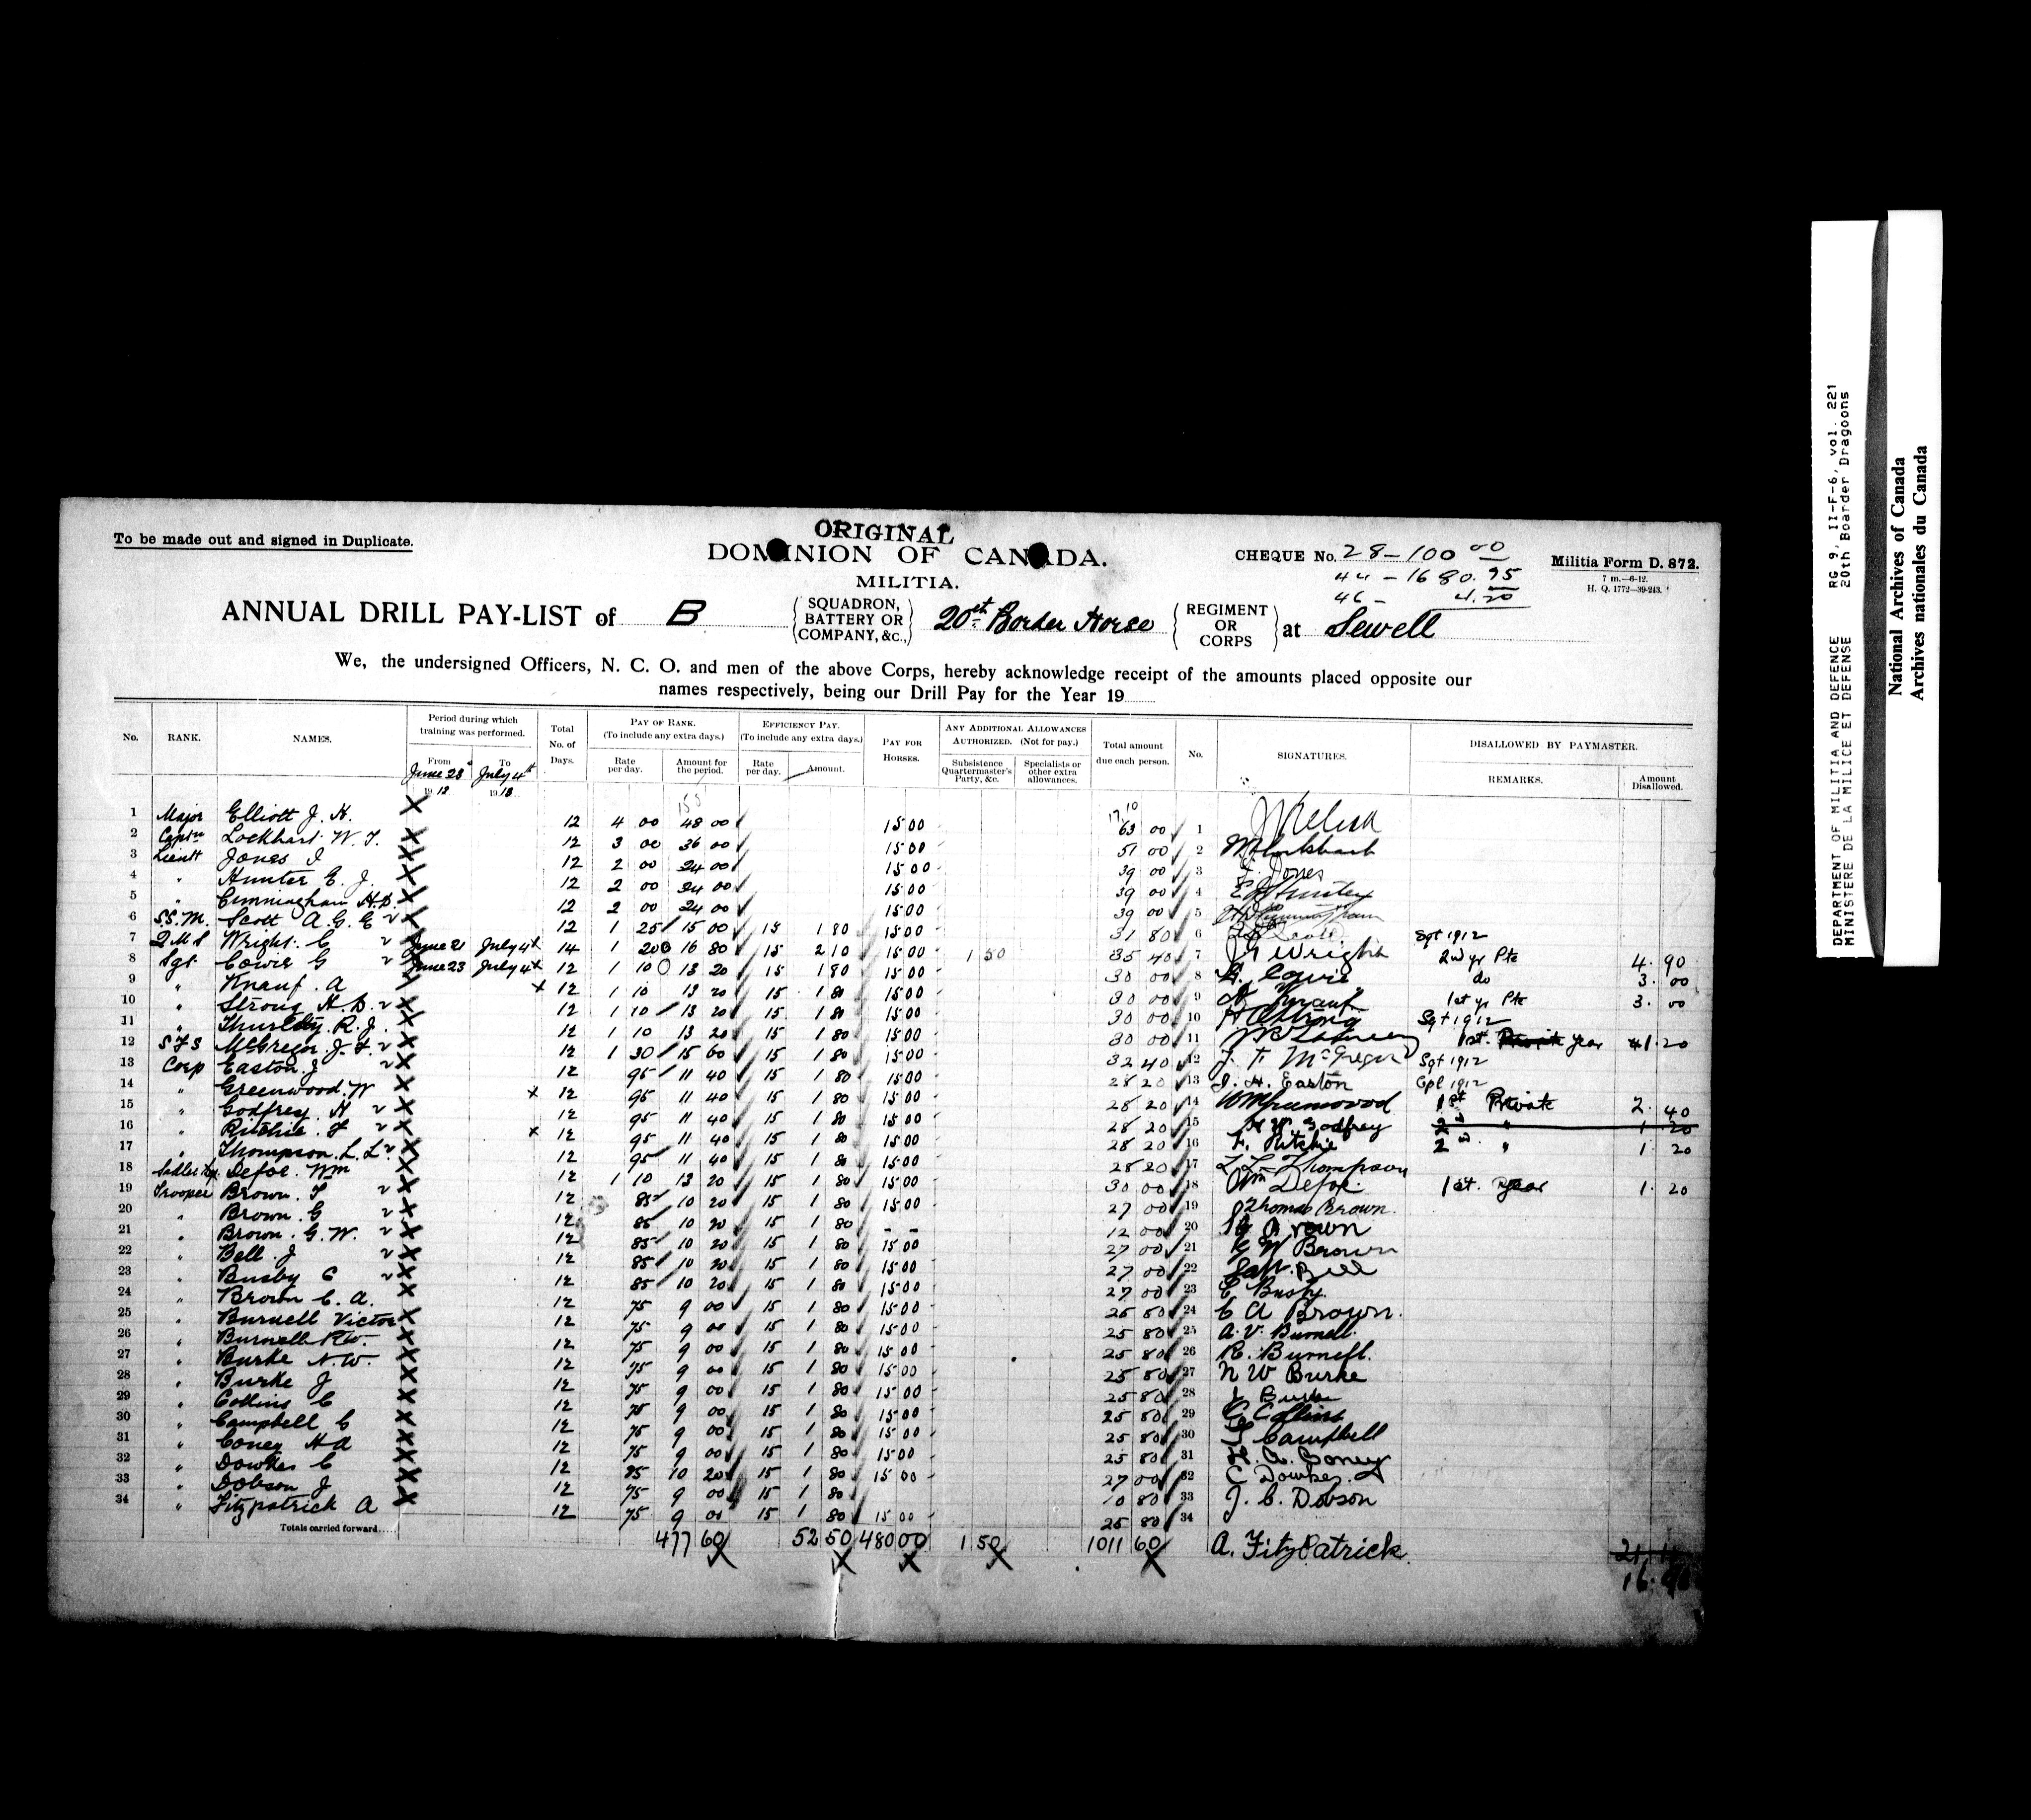 To be made out and signed in Duplicate.
ORIGINAL
DOMINION OF CANADA.
MILITIA.
CHEQUE No. 28-100 00
44-1680.95
46- 4.20
Militia Form D. 872.
7 m.-6-12.
H. Q. 1772-39-243.
ANNUAL DRILL PAY-LIST of B SQUADRON, BATTERY OR COMPANY, &c., 20th Border Horse REGIMENT OR CORPS at Sewell
We, the undersigned Officers, N. C. O. and men of the above Corps, hereby acknowledge receipt of the amounts placed opposite our
names respectively, being our Drill Pay for the Year 19
No. RANK. NAMES. Period during which training was performed. From June 23 1913 To July 4th 1913 Total No. of Days. PAY OF RANK. (To include any extra days.) Rate per day. Amount for the period. EFFICIENCY PAY. (To include any extra days.) Rate per day. Amount. PAY FOR HORSES. ANY ADDITIONAL ALLOWANCES AUTHORIZED. (Not for pay.) Subsistence Quartermaster's Party, &c. Specialists or other extra allowances. Total amount due each person. No. SIGNATURES. DISALLOWED BY PAYMASTER. REMARKS. Amount Disallowed.
1 Major Elliott J. H. 12 4 00 48 00 15 00 63 00 1
2 Captn Lockhart W. T. 12 3 00 36 00 15 00 51 00 2
3 Lieut Jones I 12 2 00 24 00 15 00 39 00 3 Jones
4 " Hunter E. J. 12 2 00 24 00 15 00 39 00 4 E J Hunter
5 " Cunningham H.D. 12 2 00 24 00 15 00 39 00 5
6 S.S.M. Scott A. G. E 12 1 25 15 00 15 1 80 15 00 31 80 6 Sgt 1912
7 Q M S Wright. C June 21 July 4th 14 1 20 16 80 15 2 10 15 00 1 50 35 40 7 Wright 2nd yr Pte 4.90
8 Sgt. Cowie G June 23 July 4th 12 1 10 13 20 15 1 80 15 00 30 00 8 G. Cowie do 3.00
9 " Knauf. A x 12 1 10 13 20 15 1 80 15 00 30 00 9 A Knauf 1st yr Pte 3.00
10 " Strong H. D. 12 1 10 13 20 15 1 80 15 00 30 00 10 Strong Sgt 1912
11 " R. J. 12 1 10 13 20 15 1 80 15 00 30 00 11 1st. year 1.20
12 S F S McGregor. J. F. 12 1 30 15 60 15 1 80 15 00 32 40 12 J. F. McGregor Sgt 1912
13 Corp Easton. J 12 95 11 40 15 1 80 15 00 28 20 13 J. H. Easton Cpl 1912
14 " Greenwood. W x 12 95 11 40 15 1 80 15 00 28 20 14 Wm Greenwood 1st Private 2.40
15 " Godfrey. H 12 95 11 40 15 1 80 15 00 28 20 15 H W Godfrey 2nd " 1 20
16 " Ritchie. F x 12 95 11 40 15 1 80 15 00 28 20 16 F. Ritchie 2nd " 1.20
17 " Thompson. L. L. 12 95 11 40 15 1 80 15 00 28 20 17 L L Thompson
18 Defoe. Wm 12 1 10 13 20 15 1 80 15 00 30 00 18 Wm Defoe. 1st. year 1.20
19 Trooper Brown. T 12 85 10 20 15 1 80 15 00 27 00 19 Thomas Brown.
20 " Brown. G 12 85 10 20 15 1 80 - - 12 00 20 G Brown
21 " Brown. G. W. 12 85 10 20 15 1 80 15 00 27 00 21 G W Brown
22 " Bell. J 12 85 10 20 15 1 80 15 00 27 00 22 Bell
23 " Busby C 12 85 10 20 15 1 80 15 00 27 00 23 C Busby.
24 " Brown C. A. 12 75 9 00 15 1 80 15 00 25 80 24 C A Brown.
25 " Burnell Victor 12 75 9 00 15 1 80 15 00 25 80 25 A. V. Burnell.
26 " Burnell R W. 12 75 9 00 15 1 80 15 00 25 80 26 R. Burnell.
27 " Burke N. W. 12 75 9 00 15 1 80 15 00 25 80 27 N W Burke
28 " Burke J 12 75 9 00 15 1 80 15 00 25 80 28 J Burke
29 " Collins C 12 75 9 00 15 1 80 15 00 25 80 29 C Collins
30 " Campbell G 12 75 9 00 15 1 80 15 00 25 80 30 G Campbell
31 " Coney H A 12 75 9 00 15 1 80 15 00 25 80 31 H. A. Coney
32 " Dowkes C 12 85 10 20 15 1 80 15 00 27 00 32 C Dowkes.
33 " Dobson J 12 75 9 00 15 1 80 10 80 33 J. C. Dobson
34 " Fitzpatrick A 12 75 9 00 15 1 80 15 00 25 80 34 A. FitzPatrick.
Totals carried forward..... 477 60 52 50 480 00 1 50 1011 60
DEPARTMENT OF MILITIA AND DEFENCE RG 9, II-F-6, vol. 221
MINISTERE DE LA MILICE ET DEFENSE 20th Boarder Dragoons
National Archives of Canada
Archives nationales du Canada